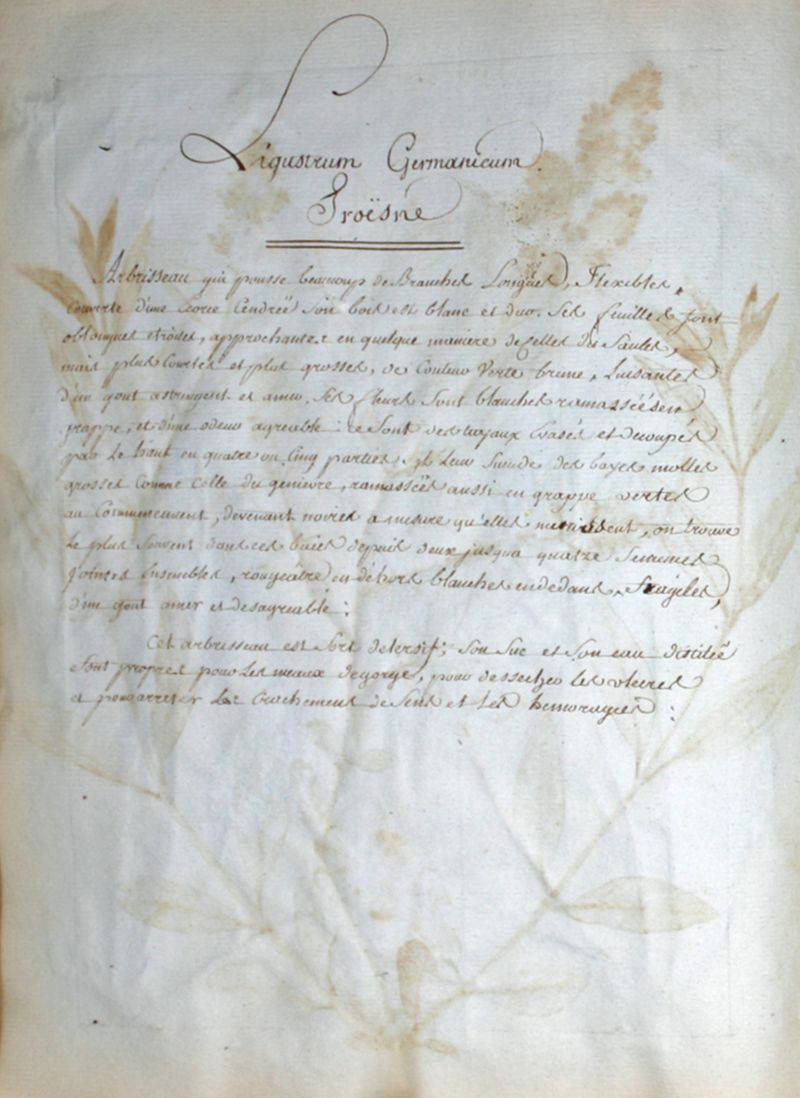 Ligustrum Germanicum.
Troësne
Arbrisseau qui pousse beaucoup de Branches Longües, Flexibles,
Couverte d'une Ecorce Cendreë Son bois est blanc et dur. Ses feuilles sont
oblongues etroites, approchantes en quelque maniere de Celles du Saules,
mais plus Courtes et plus grosses, de Couleur Verte brune, Luisantes
d'un gout astringent et amer, Ses fleurs Sont blanches ramasséës en
grappe, et d'une odeur agreable: ce Sont des tuyaux Evasés et decoupés
par Le haut en quatre ou Cinq parties. il Leur Sucede des bayes molles
grosses Comme Celle du genievre, ramasseës aussi en grappe vertes
au Commencement, devenant noires a mesure qu'elles murissent, on trouve
Le plus Souvent dans ces baies depuis deux jusqua quatre Semences
Jointes Ensembles, rougeâtre en déhors blanches en dedans, Fragiles,
d'un gout amer et desagreable:
Cet arbrisseau est fort detersif; Son Suc et Son eau distileë
Sont propres pour Les meaux de gorge, pour dessecher les ulceres
et pour arreter Les Crachemens de Sens et Les hemoragies: